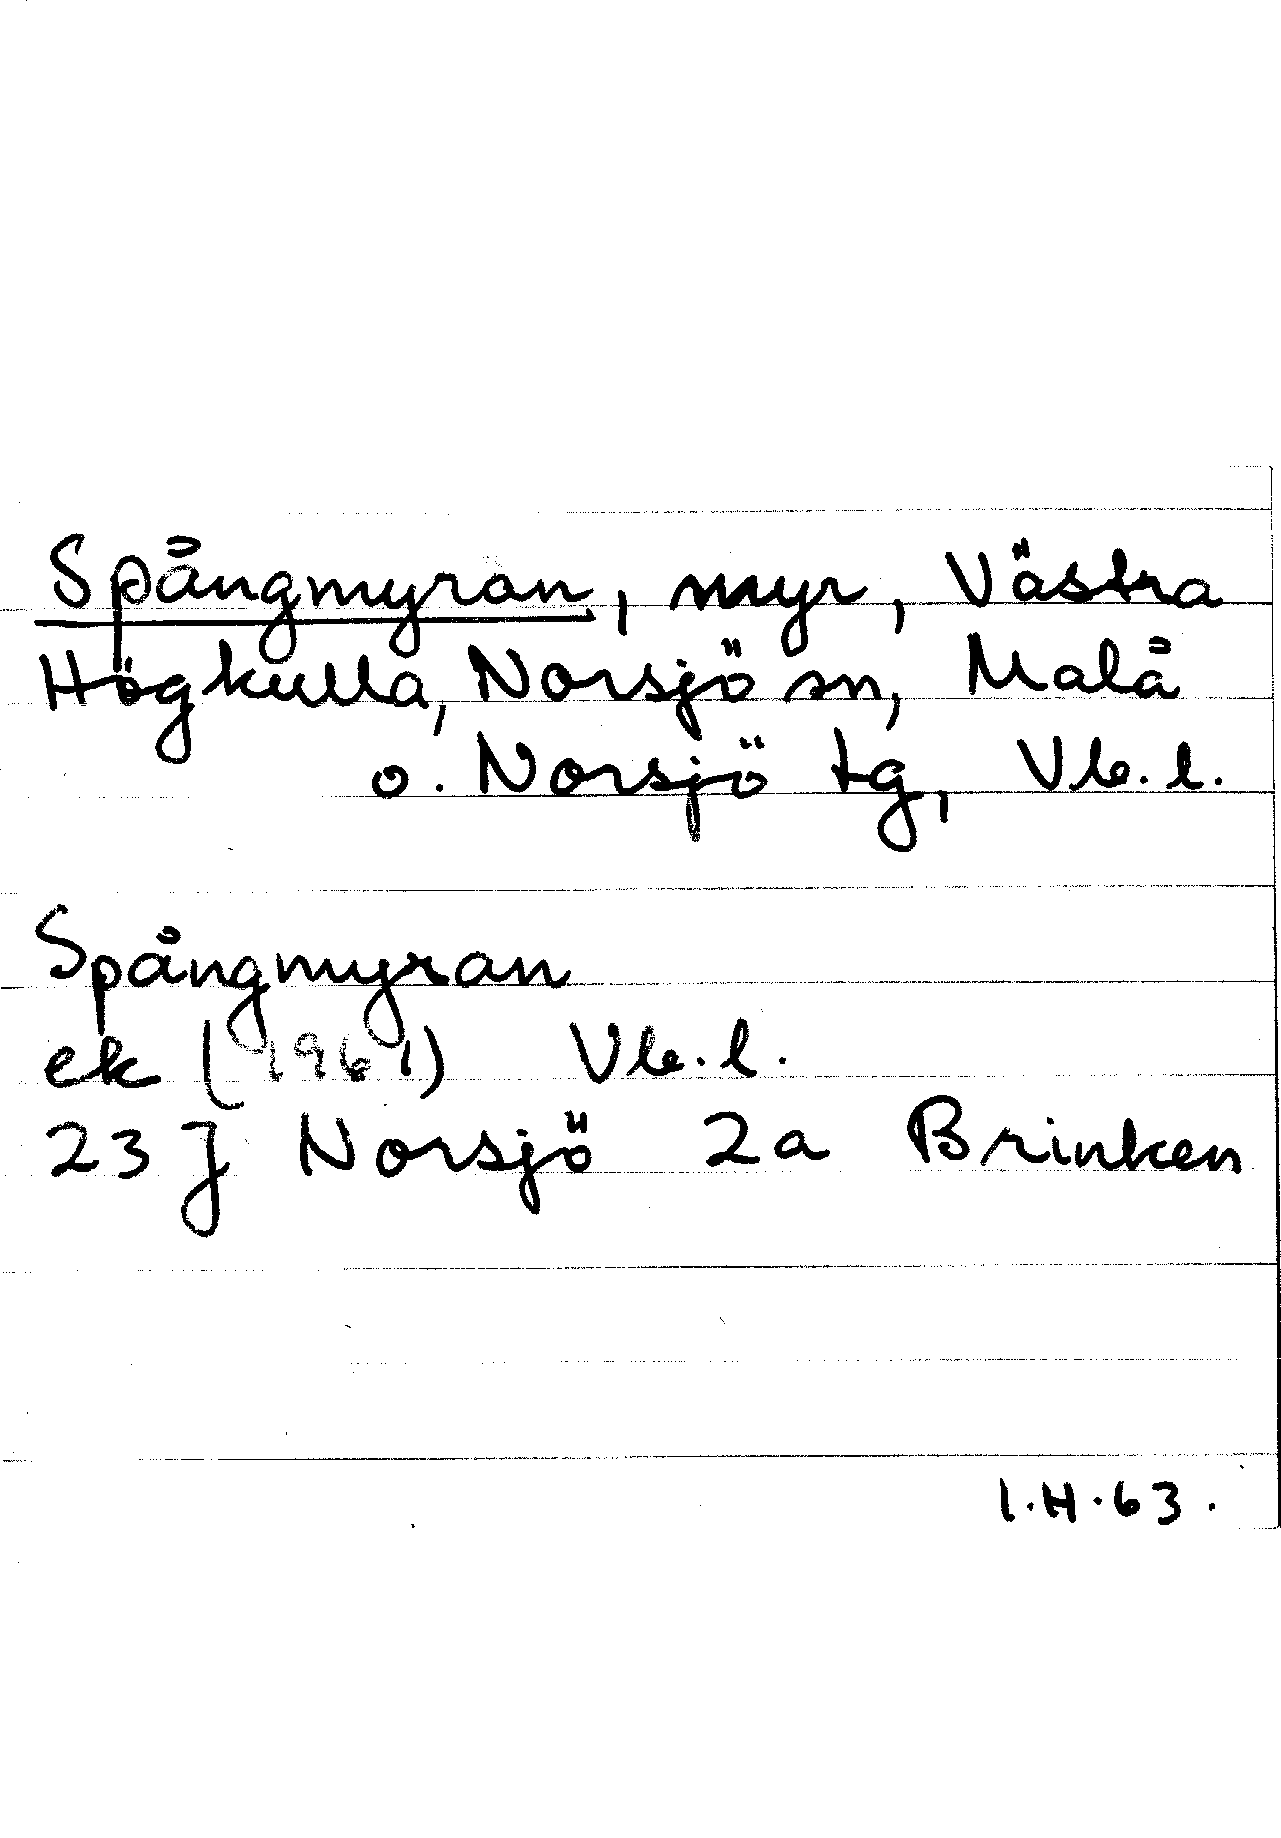 Spångmyran, myr, Västra
Högkulla, Norsjö sn, Malå
o. Norsjö tg, Vb. l.
Spångmyran
ek (1961) Vb. l.
23 J Norsjö 2a Brinken
I.H.63.